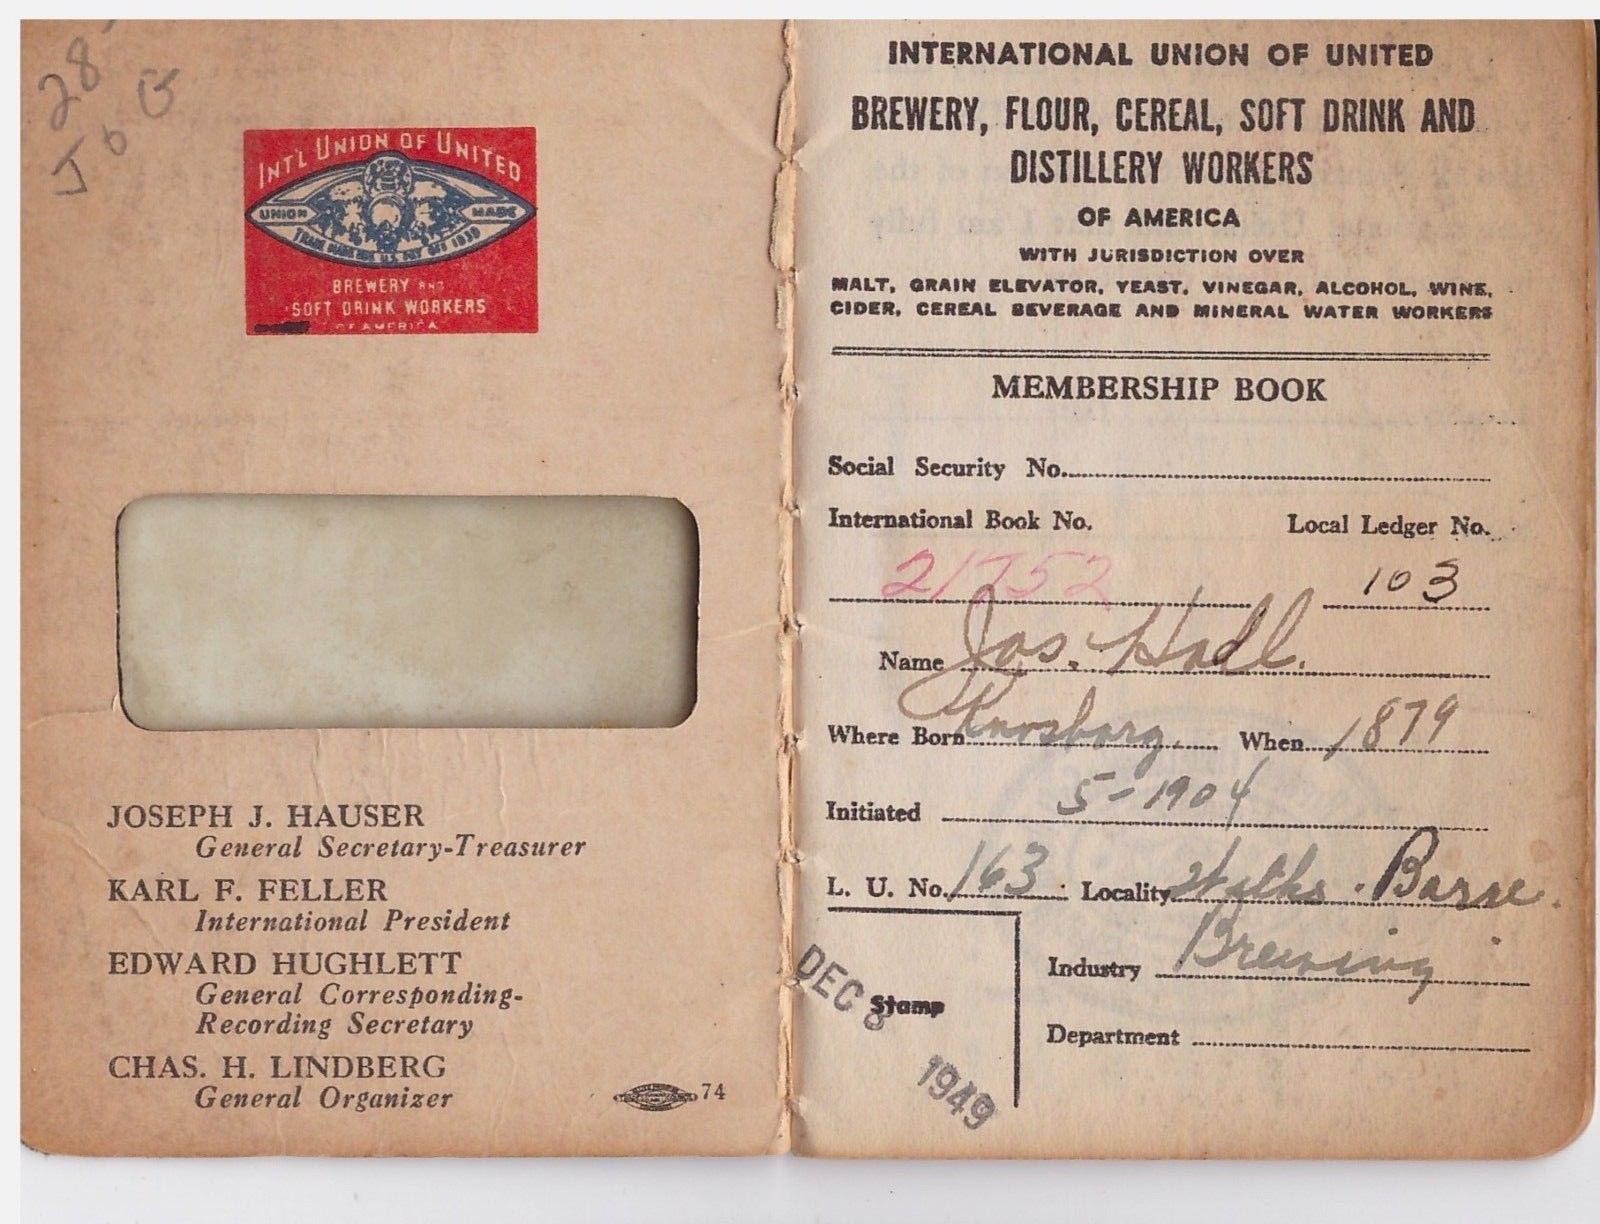 28
J o B
INT'L UNION OF UNITED
UNION MADE
TRADE MARK REG. U.S. PAT. OFF. 1939
BREWERY AND
SOFT DRINK WORKERS
OF AMERICA
JOSEPH J. HAUSER
General Secretary-Treasurer
KARL F. FELLER
International President
EDWARD HUGHLETT
General Corresponding-
Recording Secretary
CHAS. H. LINDBERG
General Organizer
74
INTERNATIONAL UNION OF UNITED
BREWERY, FLOUR, CEREAL, SOFT DRINK AND
DISTILLERY WORKERS
OF AMERICA
WITH JURISDICTION OVER
MALT, GRAIN ELEVATOR, YEAST, VINEGAR, ALCOHOL, WINE,
CIDER, CEREAL BEVERAGE AND MINERAL WATER WORKERS
MEMBERSHIP BOOK
Social Security No.
International Book No. Local Ledger No.
21752 103
Name Jos. Hall.
Where Born When 1879
Initiated 5-1904
L. U. No. 163 Locality Wilks-Barre.
Industry Brewing
Stamp
DEC 8 1949
Department